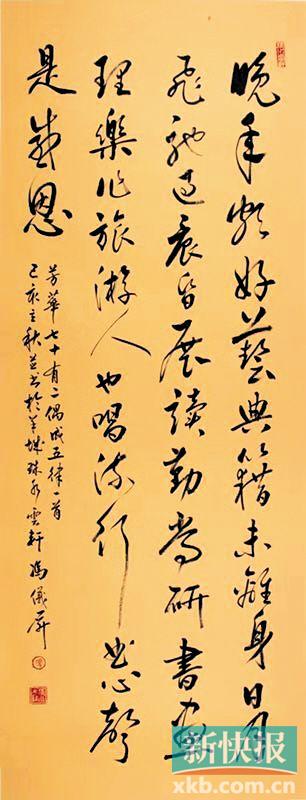 晚年好藝典籍未離身日月
飛馳過晨昏展讀勤常研書畫
理樂作旅游人也唱流行曲心聲
是感恩
芳華七十有二偶成五律一首
己亥立秋并書於羊城珠水雲軒馮儀屏
新快报
xkb.com.cn